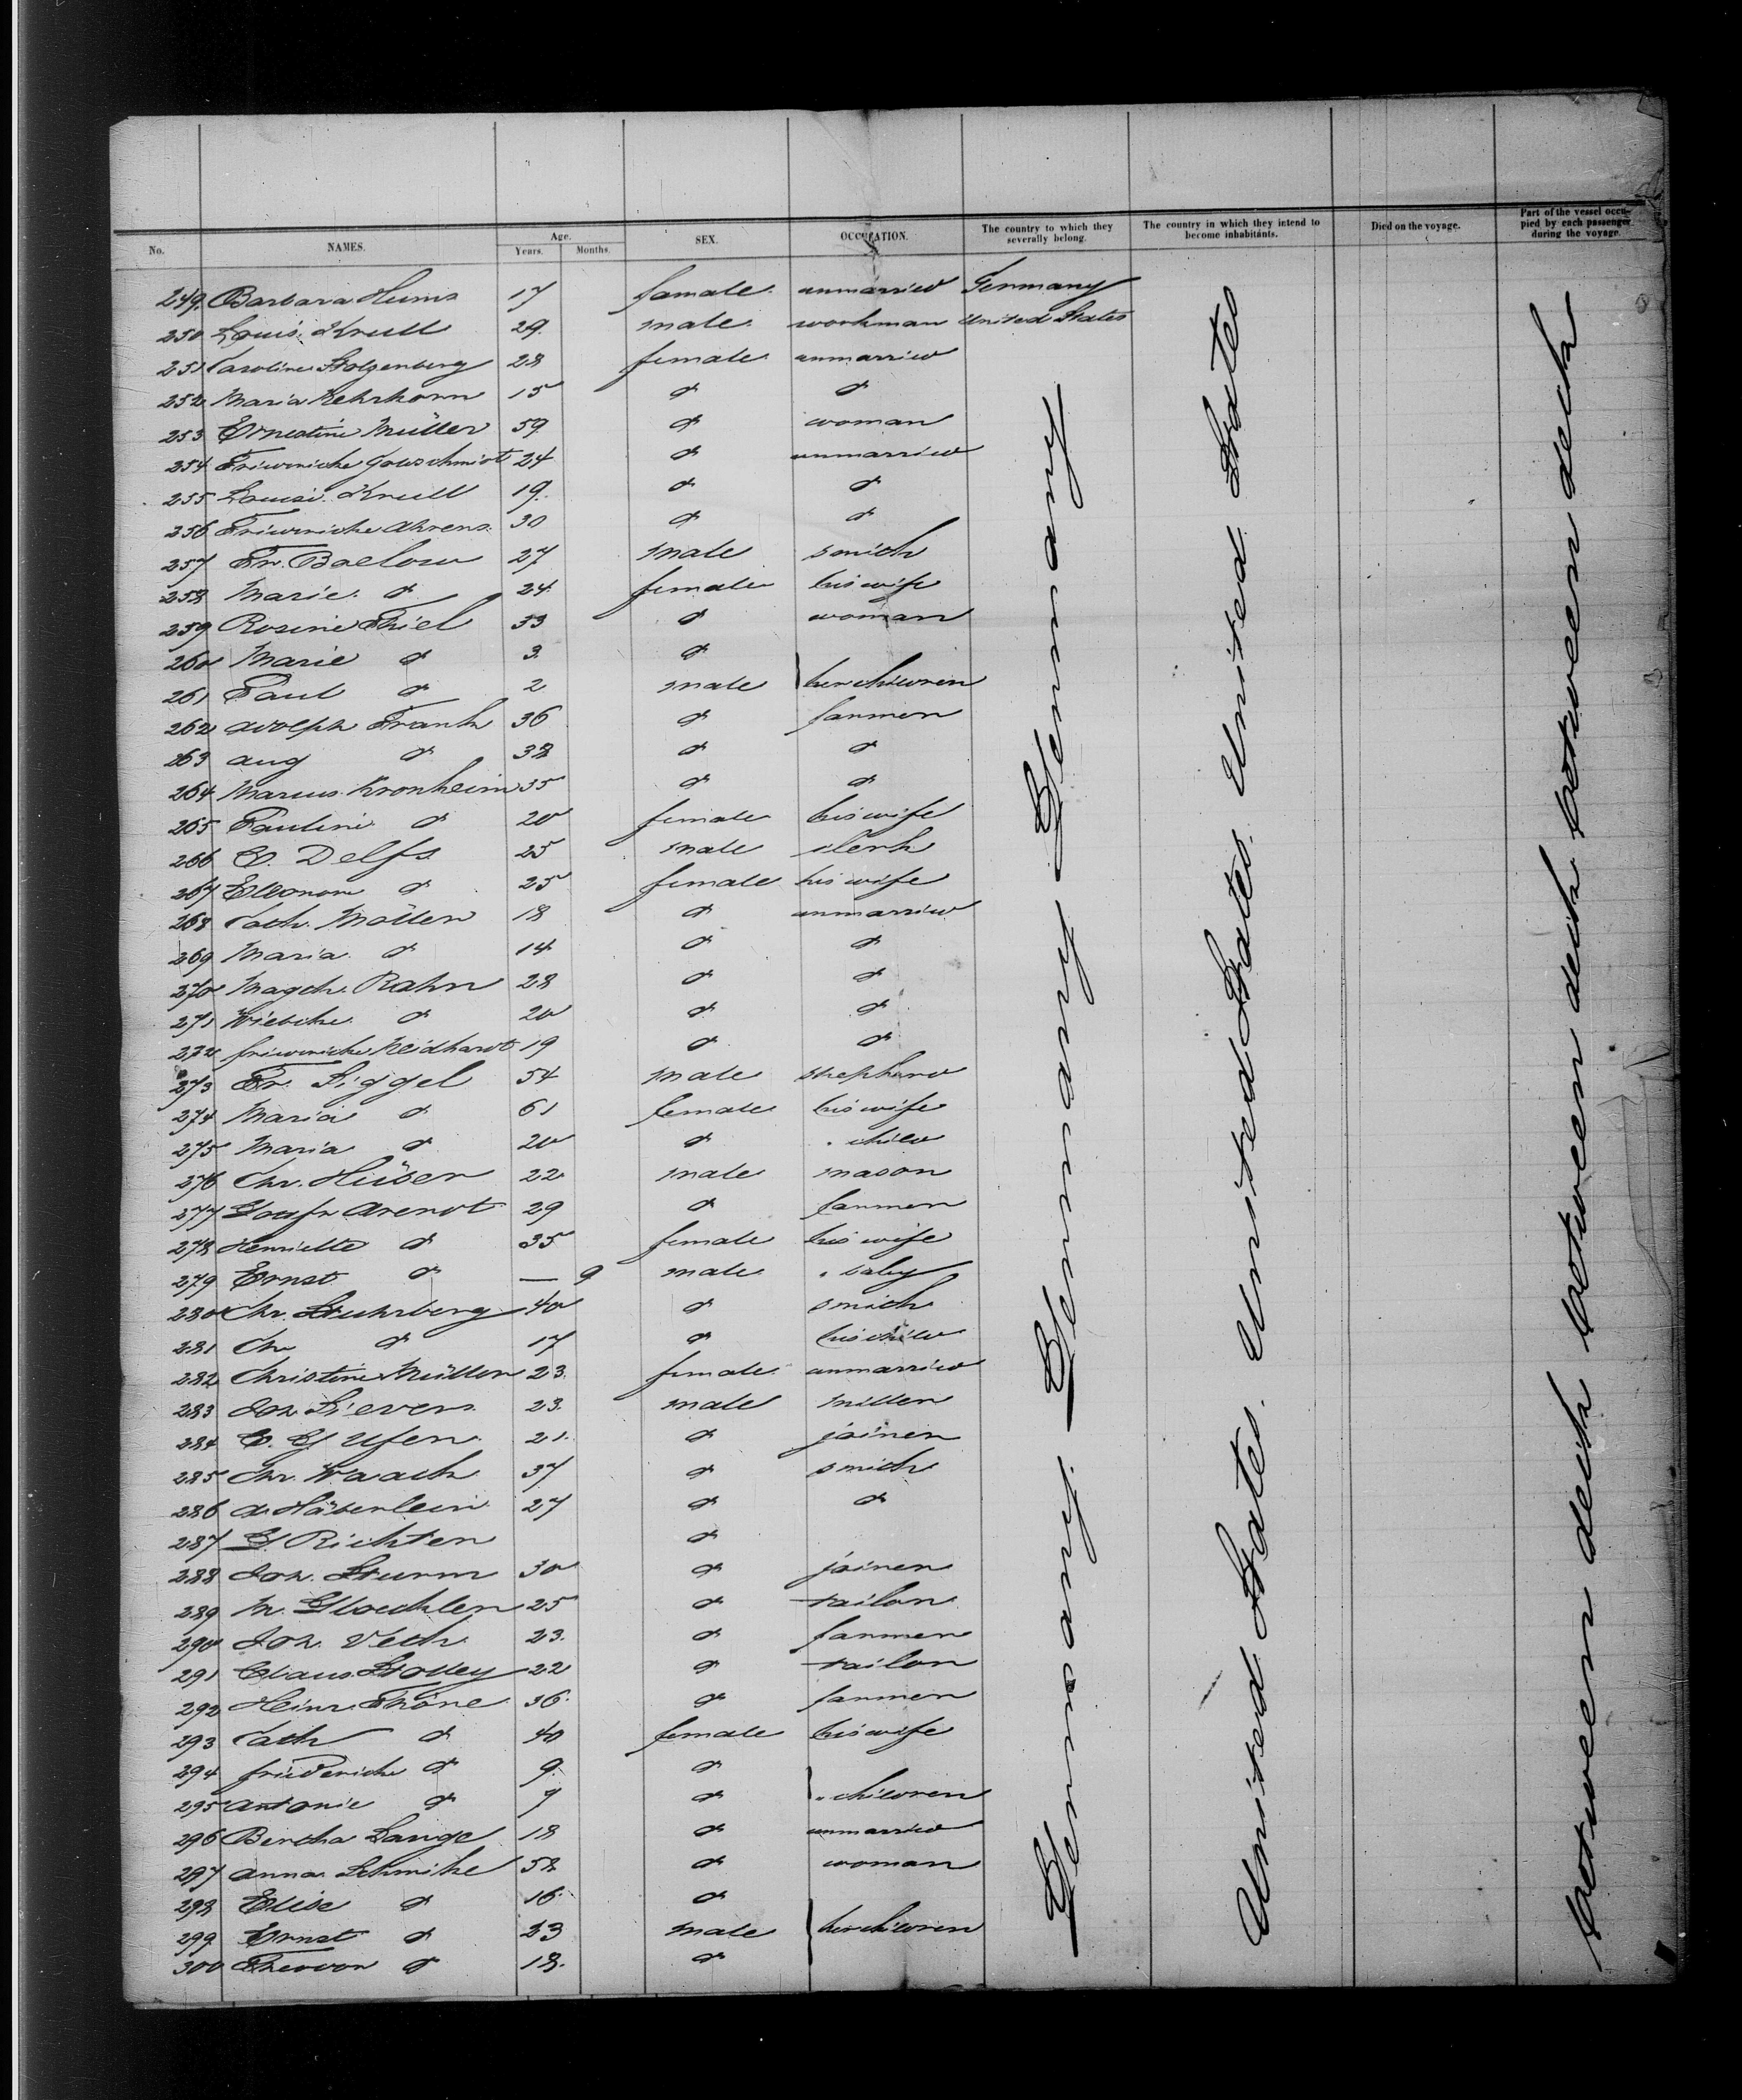 No. NAMES. Age. Years. Months. SEX. OCCUPATION. The country to which they severally belong. The country in which they intend to become inhabitants. Died on the voyage. Part of the vessel occupied by each passenger during the voyage.
249. Barbara Heims 17 female unmarried Germany
250 Louis Krull 29 male workman United States
251 Caroline Stolzenberg 28 female unmarried
252 Maria Kehrhorn 15 d d
253 Ernestine Müller 59 d woman
254 Friederiche Goldschmidt 24 d unmarried
255 Louise Krull 19 d d
256 Friederiche Ahrens 30 d d
257 Fr. Baelow 27 male smith
258 Marie d 24 female his wife
259 Rosine Thiel 33 d woman
260 Marie d 3 d
261 Paul d 2 male her children
262 Adolph Frank 36 d farmer
263 Aug d 38 d d
264 Marcus Kronheim 35 d d
265 Pauline d 20 female his wife
266 C. Delfs 25 male clerk
267 Eleonore d 25 female his wife
268 Cath. Möller 18 d unmarried
269 Maria d 14 d d
270 Magdh. Rahn 28 d d
271 Wiebche d 20 d d
272 Friederiche Neidhardt 19 d d
273 Fr. Siggel 54 male shepherd
274 Maria d 61 female his wife
275 Maria d 20 d " child
276 Chr. Hüber 22 male mason
277 Gottfr Arendt 29 d farmer
278 Henriette d 35 female his wife
279 Ernst d — 9 male " baby
280 Chr. Stuhrberg 40 d smith
281 Chr d 17 d his child
282 Christine Müller 23 female unmarried
283 Joh. Sievers 23 male miller
284 C. G Ufen 21 d joiner
285 Chr. Waack 37 d smith
286 A. Häberlein 27 d d
287 G Richter d
288 Joh. Sturm 30 d joiner
289 M. Gloeckler 25 d tailor
290 Joh. Veth 23 d farmer
291 Claus Stolley 22 d tailor
292 Heinr Thöne 36 d farmer
293 Cath d 40 female his wife
294 Friederiche d 9 d
295 Antonie d 7 d " children
296 Bertha Lange 18 d unmarried
297 Anna Schmike 58 d woman
298 Elise d 16 d
299 Ernst d 23 male her children
300 Theodor d 18 d
Germany. Germany Germany
United States. United States. United States
between deck between deck between deck